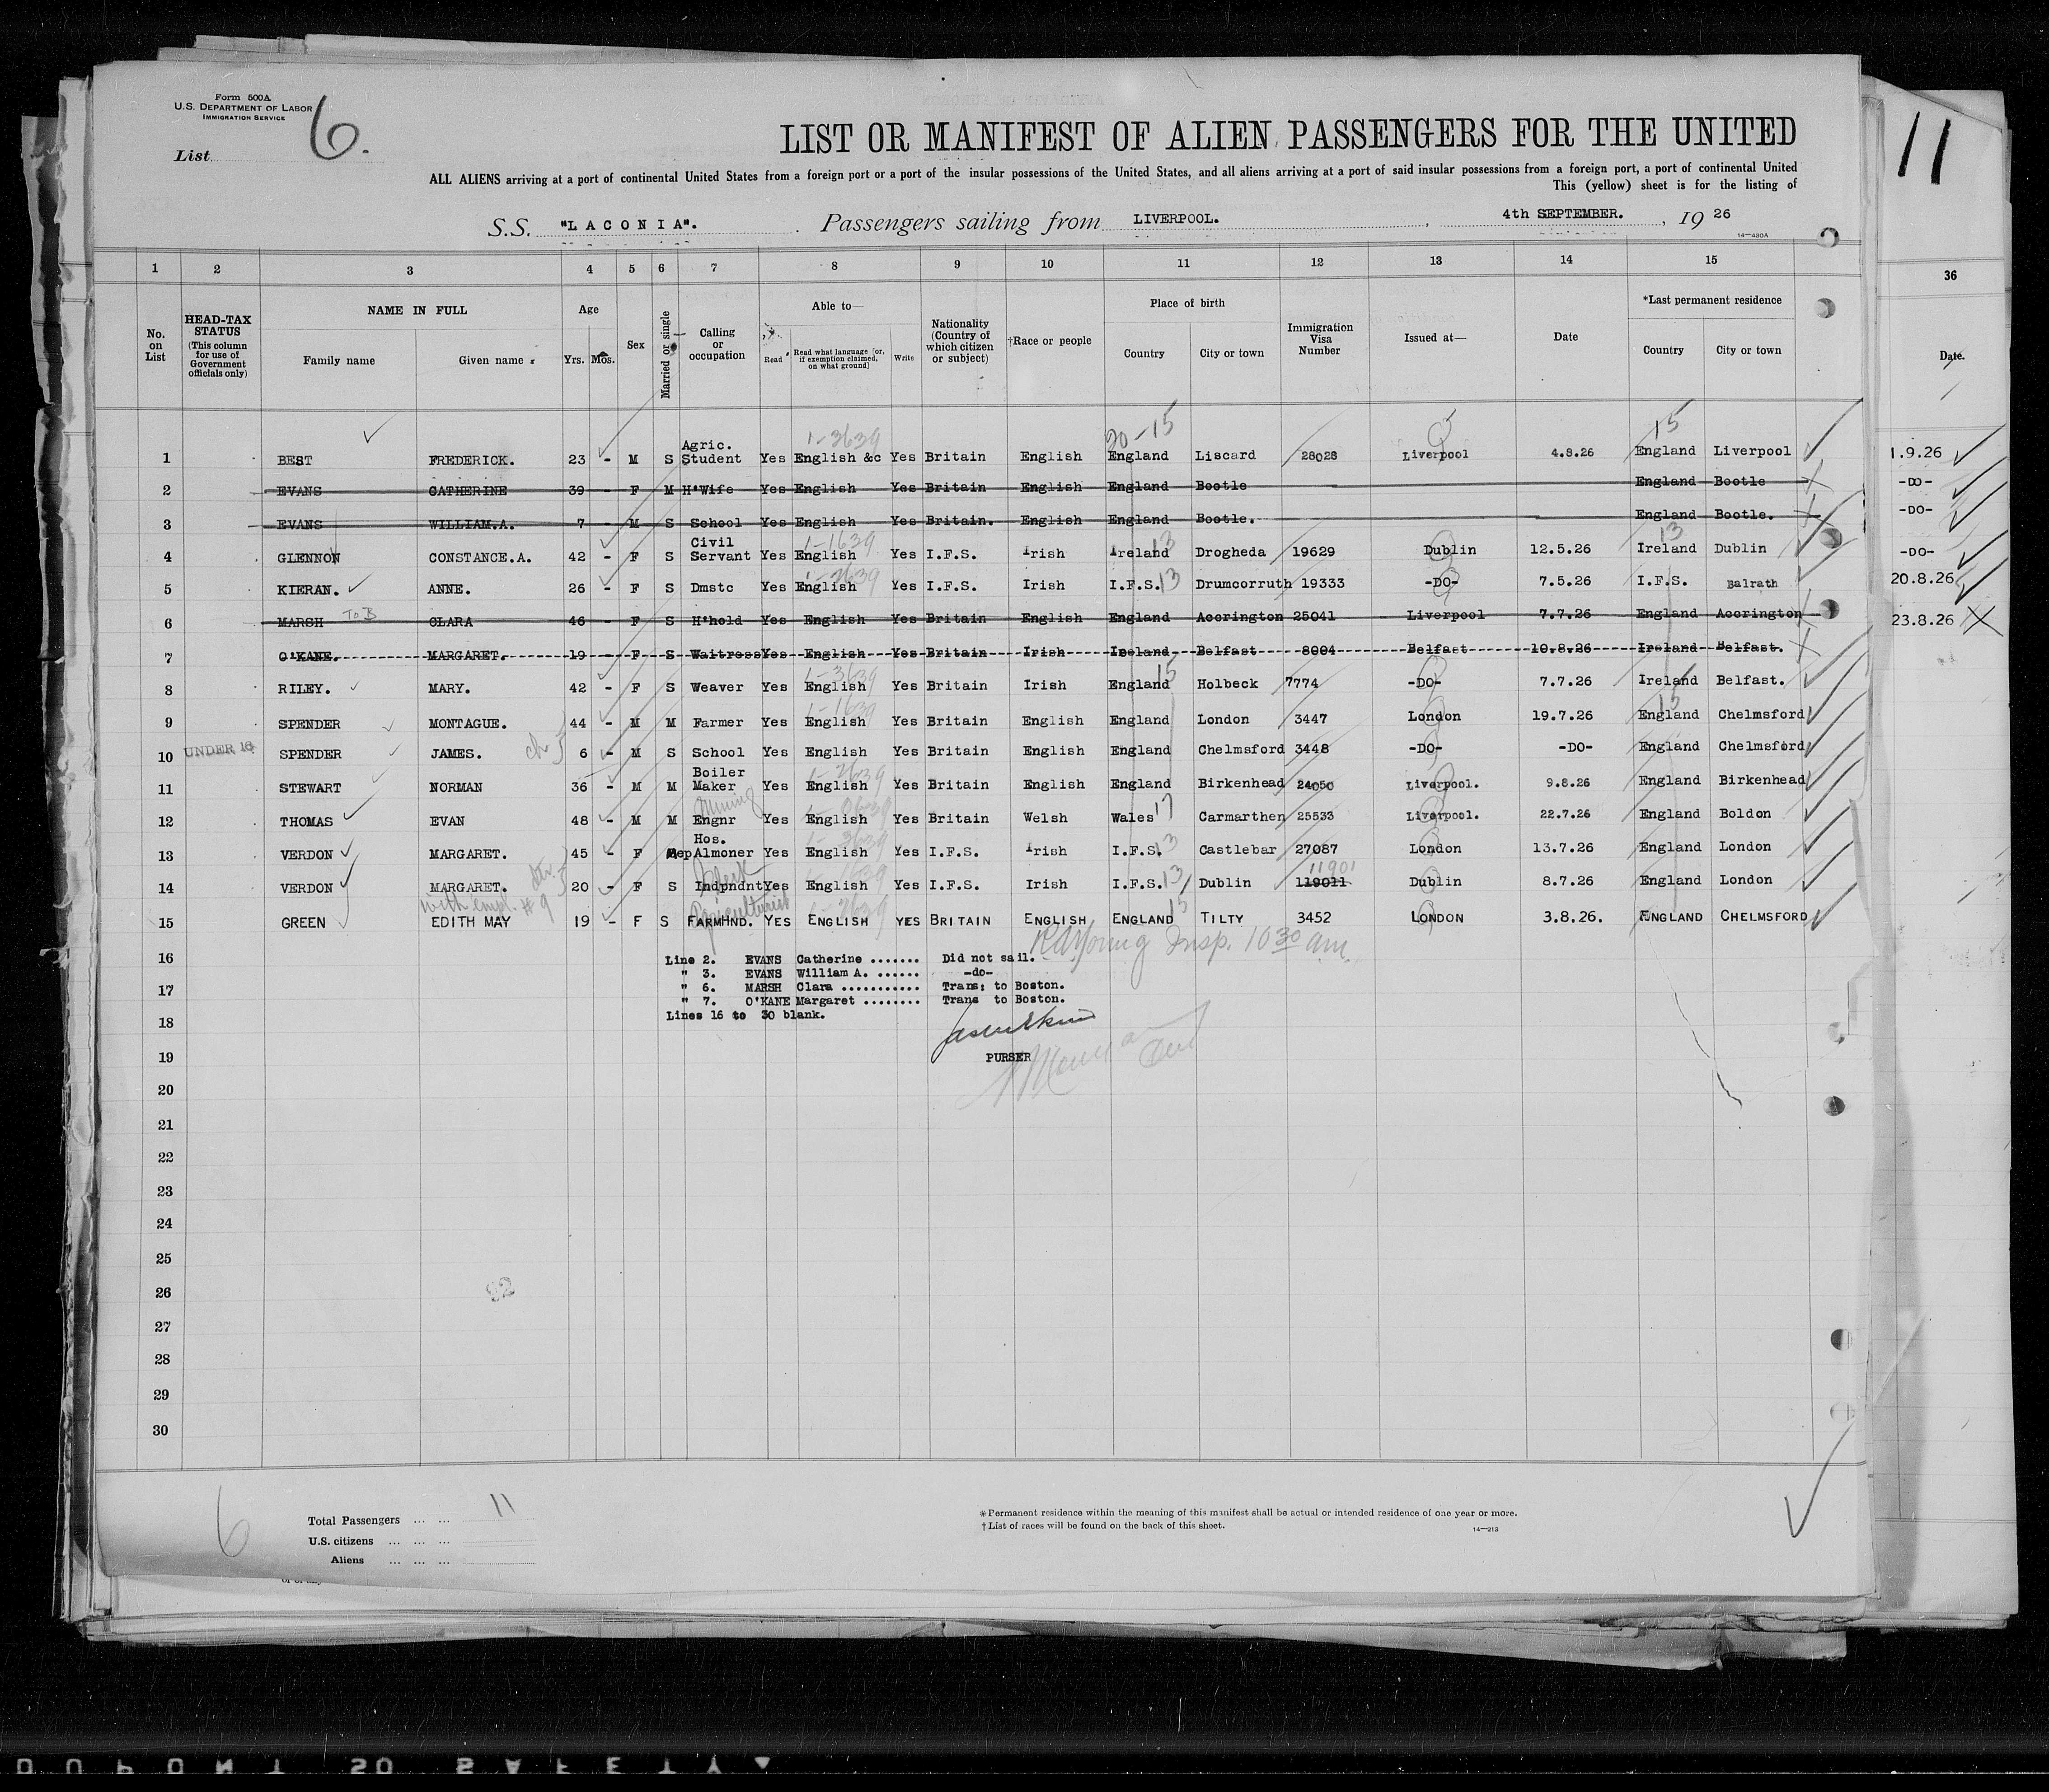 Form 500A
U.S. DEPARTMENT OF LABOR
IMMIGRATION SERVICE
6.
List
LIST OR MANIFEST OF ALIEN PASSENGERS FOR THE UNITED
ALL ALIENS arriving at a port of continental United States from a foreign port or a port of the insular possessions of the United States, and all aliens arriving at a port of said insular possessions from a foreign port, a port of continental United
This (yellow) sheet is for the listing of
S.S. "LACONIA". Passengers sailing from LIVERPOOL. , 4th SEPTEMBER. , 19 26
14—430A
11
1 2 3 4 5 6 7 8 9 10 11 12 13 14 15 36
No. on List
HEAD-TAX STATUS (This column for use of Government officials only)
NAME IN FULL
Family name Given name
Age
Yrs. Mos.
Sex
Married or single
Calling or occupation
Able to—
Read Read what language (or, if exemption claimed, on what ground) Write
Nationality (Country of which citizen or subject)
†Race or people
Place of birth
Country City or town
Immigration Visa Number
Issued at—
Date
*Last permanent residence
Country City or town
Date.
1-3639 20-15 15
1 BEST FREDERICK. 23 - M S Agric. Student Yes English &c Yes Britain English England Liscard 28028 Liverpool 4.8.26 England Liverpool 1.9.26
2 EVANS CATHERINE 39 - F M H'Wife Yes English Yes Britain English England Bootle England Bootle -DO-
3 EVANS WILLIAM.A. 7 - M S School Yes English Yes Britain. English England Bootle. England Bootle. -DO-
1-1639 13 13
4 GLENNON CONSTANCE.A. 42 - F S Civil Servant Yes English Yes I.F.S. Irish Ireland Drogheda 19629 Dublin 12.5.26 Ireland Dublin -DO-
1-2639
5 KIERAN. ANNE. 26 - F S Dmstc Yes English Yes I.F.S. Irish I.F.S. 13 Drumcorruth 19333 -DO- 7.5.26 I.F.S. Balrath 20.8.26
6 MARSH To B CLARA 46 - F S H'hold Yes English Yes Britain English England Accrington 25041 Liverpool 7.7.26 England Accrington 23.8.26
7 O'KANE. MARGARET. 19 - F S Waitress Yes English Yes Britain Irish Ireland Belfast 8004 Belfast 10.8.26 Ireland Belfast.
1-3639 15
8 RILEY. MARY. 42 - F S Weaver Yes English Yes Britain Irish England Holbeck 7774 -DO- 7.7.26 Ireland Belfast.
1-1639 15
9 SPENDER MONTAGUE. 44 - M M Farmer Yes English Yes Britain English England London 3447 London 19.7.26 England Chelmsford
10 UNDER 16 SPENDER JAMES. ch 6 - M S School Yes English Yes Britain English England Chelmsford 3448 -DO- -DO- England Chelmsford
1-2639
11 STEWART NORMAN 36 - M M Boiler Maker Yes English Yes Britain English England Birkenhead 24050 Liverpool. 9.8.26 England Birkenhead
Mining
12 THOMAS EVAN 48 - M M Engnr Yes English Yes Britain Welsh Wales 17 Carmarthen 25533 Liverpool. 22.7.26 England Boldon
13 VERDON MARGARET. 45 - F Sep Hos. Almoner Yes English Yes I.F.S. Irish I.F.S. 13 Castlebar 27087 London 13.7.26 England London
Clerk 11901
14 VERDON MARGARET. 20 - F S Indpndnt Yes English Yes I.F.S. Irish I.F.S. 13 Dublin 119011 Dublin 8.7.26 England London
with empl. # 9 Agriculturist 15
15 GREEN EDITH MAY 19 - F S FARMHND. YES ENGLISH YES BRITAIN ENGLISH ENGLAND TILTY 3452 LONDON 3.8.26. ENGLAND CHELMSFORD
Insp. 10 30 am.
16
Line 2. EVANS Catherine ....... Did not sail.
" 3. EVANS William A. ...... -do-
17
" 6. MARSH Clara ........... Trans: to Boston.
" 7. O'KANE Margaret ........ Trans to Boston.
18
Lines 16 to 30 blank.
19
PURSER
20
21
22
23
24
25
26
92
27
28
29
30
6
Total Passengers ... ... 11
U.S. citizens ... ... ...
Aliens ... ... ...
*Permanent residence within the meaning of this manifest shall be actual or intended residence of one year or more.
†List of races will be found on the back of this sheet.
14—213
DUPONT SAFETY